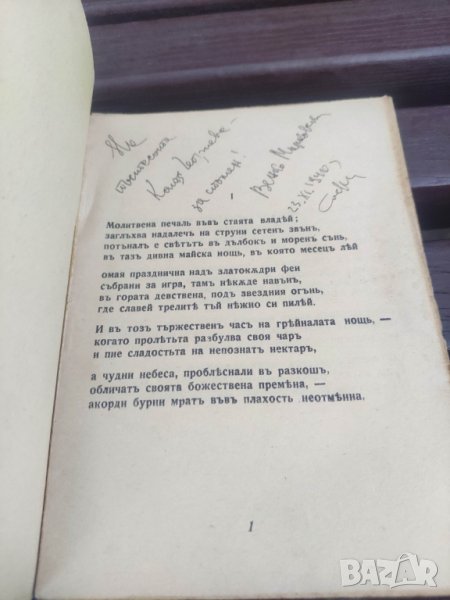 На
Колю Георгиева –
за спомен!
23.XI.1940
I
Молитвена печаль въвъ стаята владѣй;
заглъхва надалечъ на струни сетенъ звънъ,
потъналъ е свѣтътъ въ дълбокъ и моренъ сънь,
въ тазъ дивна майска нощь, въ която месецъ лѣй
омая празднична надъ златокѫдри феи
събрани за игра, тамъ нѣкѫде навънъ,
въ гората девствена, подъ звездния огънь,
где славей трелитѣ тъй нѣжно си пилѣй.
И въ тозъ тържественъ часъ на грѣйналата нощь, —
когато пролѣтьта разбулва своя чаръ
и пие сладостьта на непознатъ нектаръ,
а чудни небеса, проблѣснали въ разкошъ,
обличатъ своята божествена премѣна, —
акорди бурни мратъ въвъ плахость неотмѣнна.
1
BAZAR
.bg